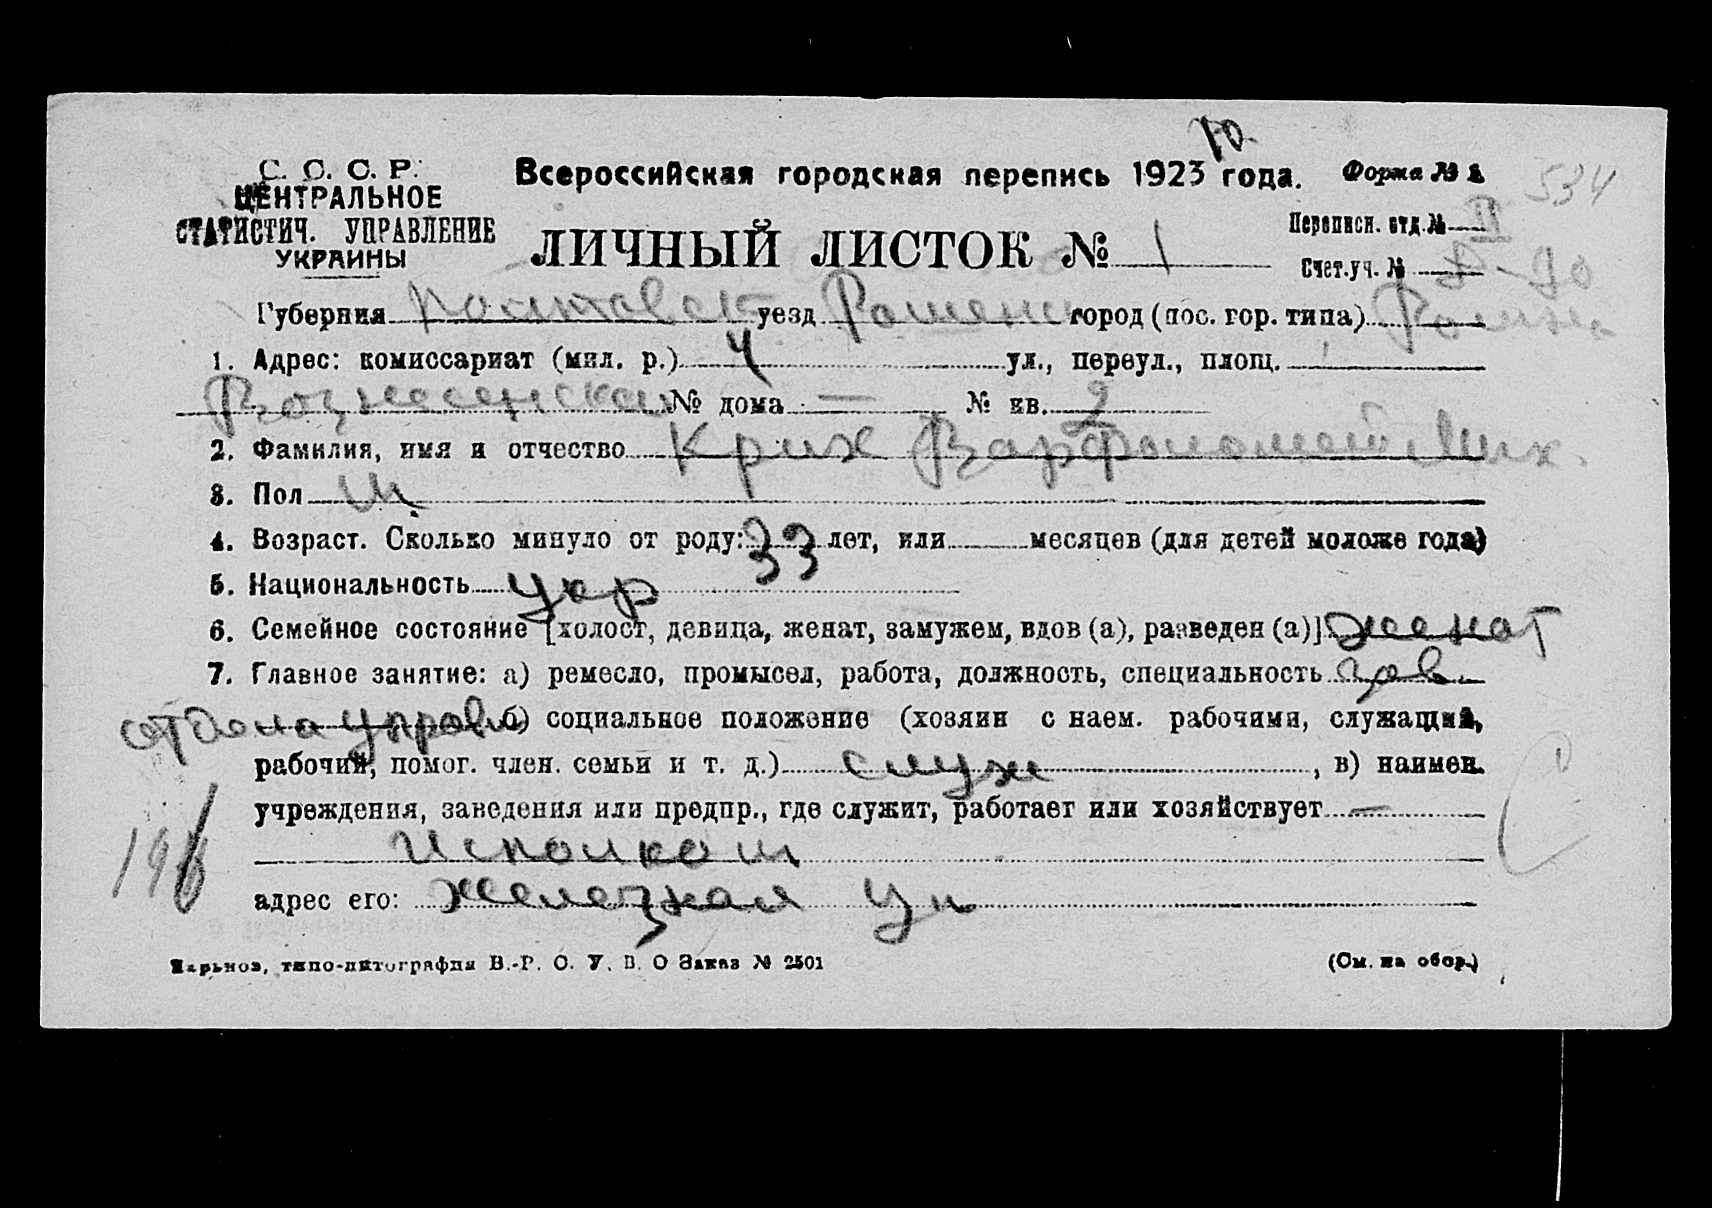 10.
С. С. С. Р. Всероссийская городская перепись 1923 года. Форма № 1 534
ЦЕНТРАЛЬНОЕ
СТАТИСТИЧ. УПРАВЛЕНИЕ ЛИЧНЫЙ ЛИСТОК № 1 Переписн. отд. № II
УКРАИНЫ Счет. уч. № 90
Губерния Полтавск уезд Ромен город (пос. гор. типа) Ромны
1. Адрес: комиссариат (мил. р.) 4 ул., переул., площ.
Вознесенская № дома — № кв. 2
2. Фамилия, имя и отчество Крих Варфоломей Мих.
3. Пол м
4. Возраст. Сколько минуло от роду: 33 лет, или месяцев (для детей моложе года)
5. Национальность укр
6. Семейное состояние [холост, девица, женат, замужем, вдов (а), разведен (а)] женат
7. Главное занятие: а) ремесло, промысел, работа, должность, специальность зав.
отдела управл б) социальное положение (хозяин с наем. рабочими, служащий,
рабочий, помог. член. семьи и т. д.) служ , в) наимен.
учреждения, заведения или предпр., где служит, работает или хозяйствует —
Исполком
196
адрес его: Железная ул
Харьков, типо-литография В.-Р. С. У. В. О Заказ № 2501 (См. на обор.)